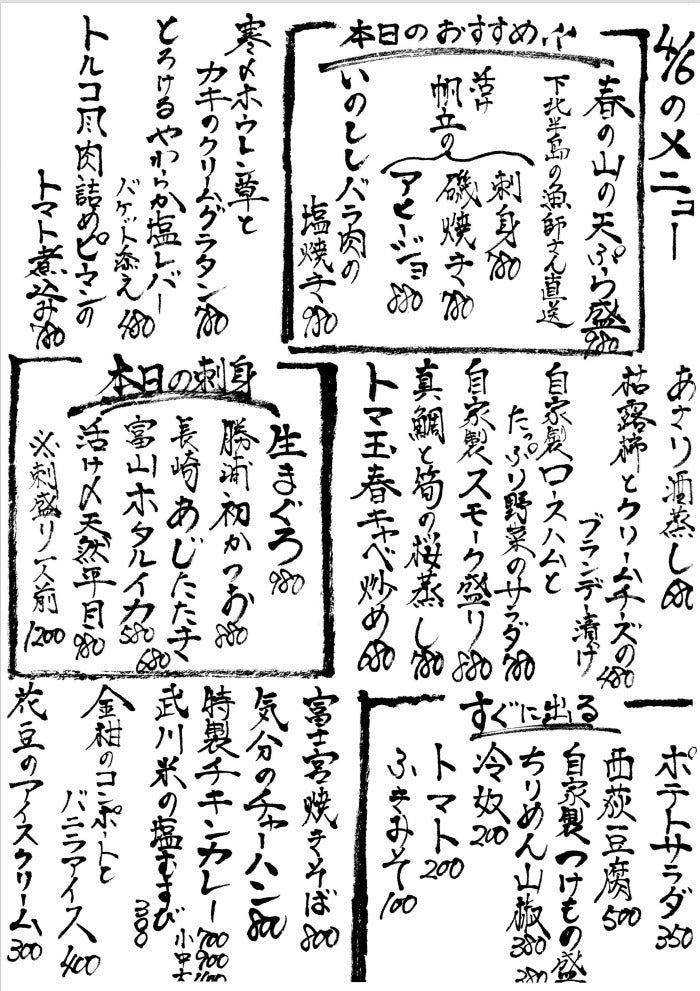 4/6のメニュー
本日のおすすめ
春の山の天ぷら盛 980
下北半島の漁師さん直送
活け
帆立の
刺身 780
磯焼き 780
アヒージョ 880
いのししバラ肉の
塩焼き 980
寒〆ホウレン草と
カキのクリームグラタン 780
とろけるやわらか塩レバー
バケット添え 480
トルコ風肉詰めピーマンの
トマト煮込み 780
あさり酒蒸し 680
枯露柿とクリームチーズの
ブランデー漬け 480
自家製ロースハムと
たっぷり野菜のサラダ 780
自家製スモーク盛り 880
真鯛と筍の桜蒸し 780
トマ玉春キャベ炒め 680
本日の刺身
生まぐろ 980
勝浦初かつお 880
長崎あじたたき 680
富山ホタルイカ 580
活け〆天然平目 980
※刺盛り一人前 1200
すぐに出る
ポテトサラダ 350
西荻豆腐 500
自家製つけもの盛 380
ちりめん山椒 380
冷奴 200
トマト 200
ふきみそ 100
富士宮焼きそば 800
気分のチャーハン 800
特製チキンカレー 700 900
小中大
武川米の塩むすび 300
金柑のコンポートと
バニラアイス 400
花豆のアイスクリーム 300